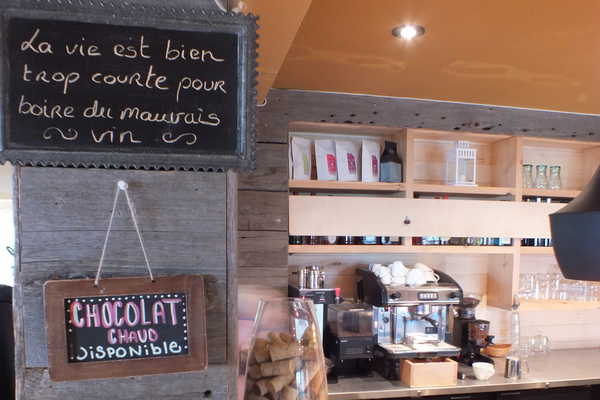 La vie est bien
trop courte pour
boire du mauvais
vin
CHOCOLAT
CHAUD
DISPONIBLE